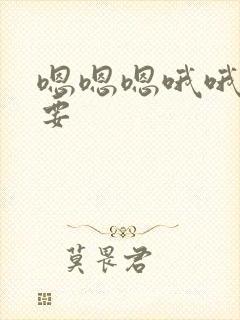 嗯嗯嗯哦哦
要
莫畏君